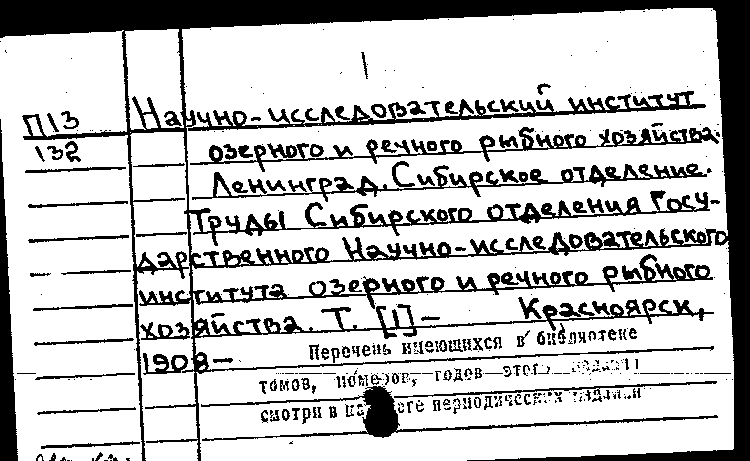 П13 Научно-исследовательский институт
132 озерного и речного рыбного хозяйства.
Ленинград. Сибирское отделение.
Труды Сибирского отделения Госу-
дарственного Научно-исследовательского
института озерного и речного рыбного
хозяйства. Т. [1]- Красноярск,
1908-
Перечень имеющихся в библиотеке
томов, номеров, годов этого издания
смотри в периодических изданий